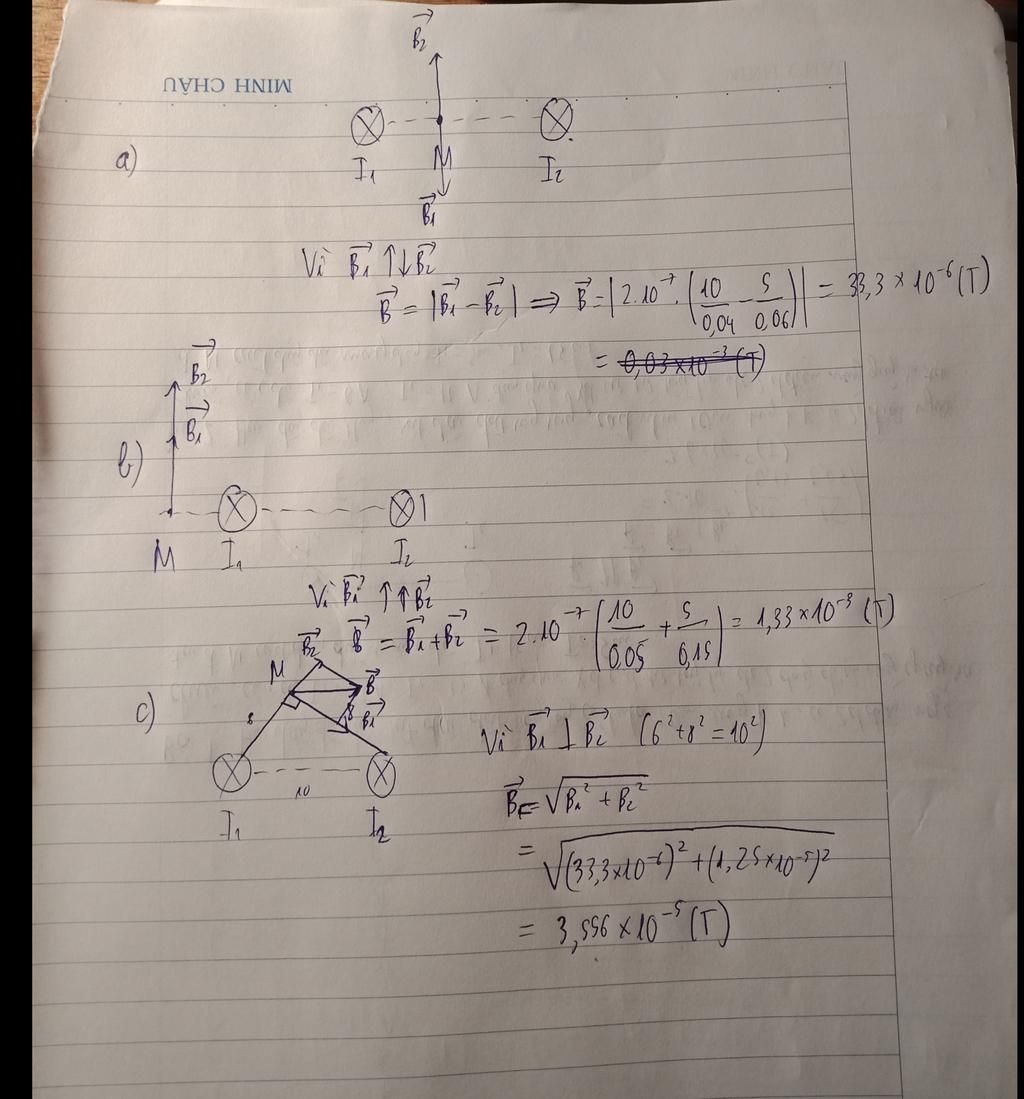 B₂
MINH CHÂU
a)
I₁ M I₂
B₁
Vì B₁ ↑↓ B₂
B = |B₁ - B₂| ⇒ B = |2.10⁻⁷.(10/0,04 - 5/0,06)| = 33,3 × 10⁻⁶ (T)
= 0,03×10⁻³ (T)
B₂
B₁
b)
M I₁ I₂
Vì B₁ ↑↑ B₂
B = B₁ + B₂ = 2.10⁻⁷.(10/0,05 + 5/0,15) = 1,33×10⁻³ (T)
B₂
M B
c) 8 B₁
Vì B₁ ⊥ B₂ (6² + 8² = 10²)
10
I₁ I₂
B = √B₁² + B₂²
= √(33,3×10⁻⁶)² + (1,25×10⁻⁵)²
= 3,556 × 10⁻⁵ (T)